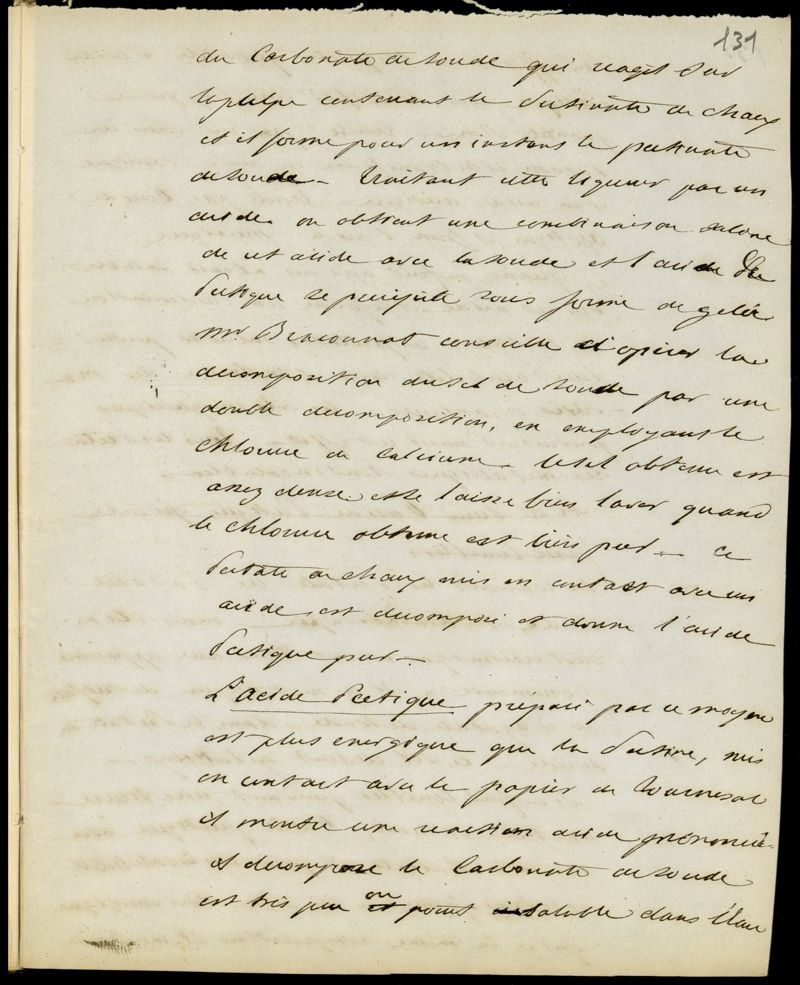 131
du Carbonate de soude qui réagit sur
la pulpe contenant le Pectinate de chaux
et il forme pour un instant le pectinate
de soude – traitant cette liqueur par un
acide on obtient une combinaison saline
de cet acide avec la soude et l'acide
Pectique se précipite sous forme de gelée
Mr Braconnot conseille d'opérer la
décomposition du sel de soude par une
double décomposition, en employant le
chlorure de Calcium – le sel obtenu est
assez dense et se laisse bien laver quand
le chlorure obtenu est très pur – ce
Pectate de chaux mis en contact avec un
acide, est décomposé et donne l'acide
Pectique pur –
L'acide Pectique préparé par ce moyen
est plus énergique que la Pectine, mis
en contact avec le papier de Tournesol
il montre une réaction acide prononcée
il décompose le Carbonate de soude
est très peu ou point soluble dans l'Eau